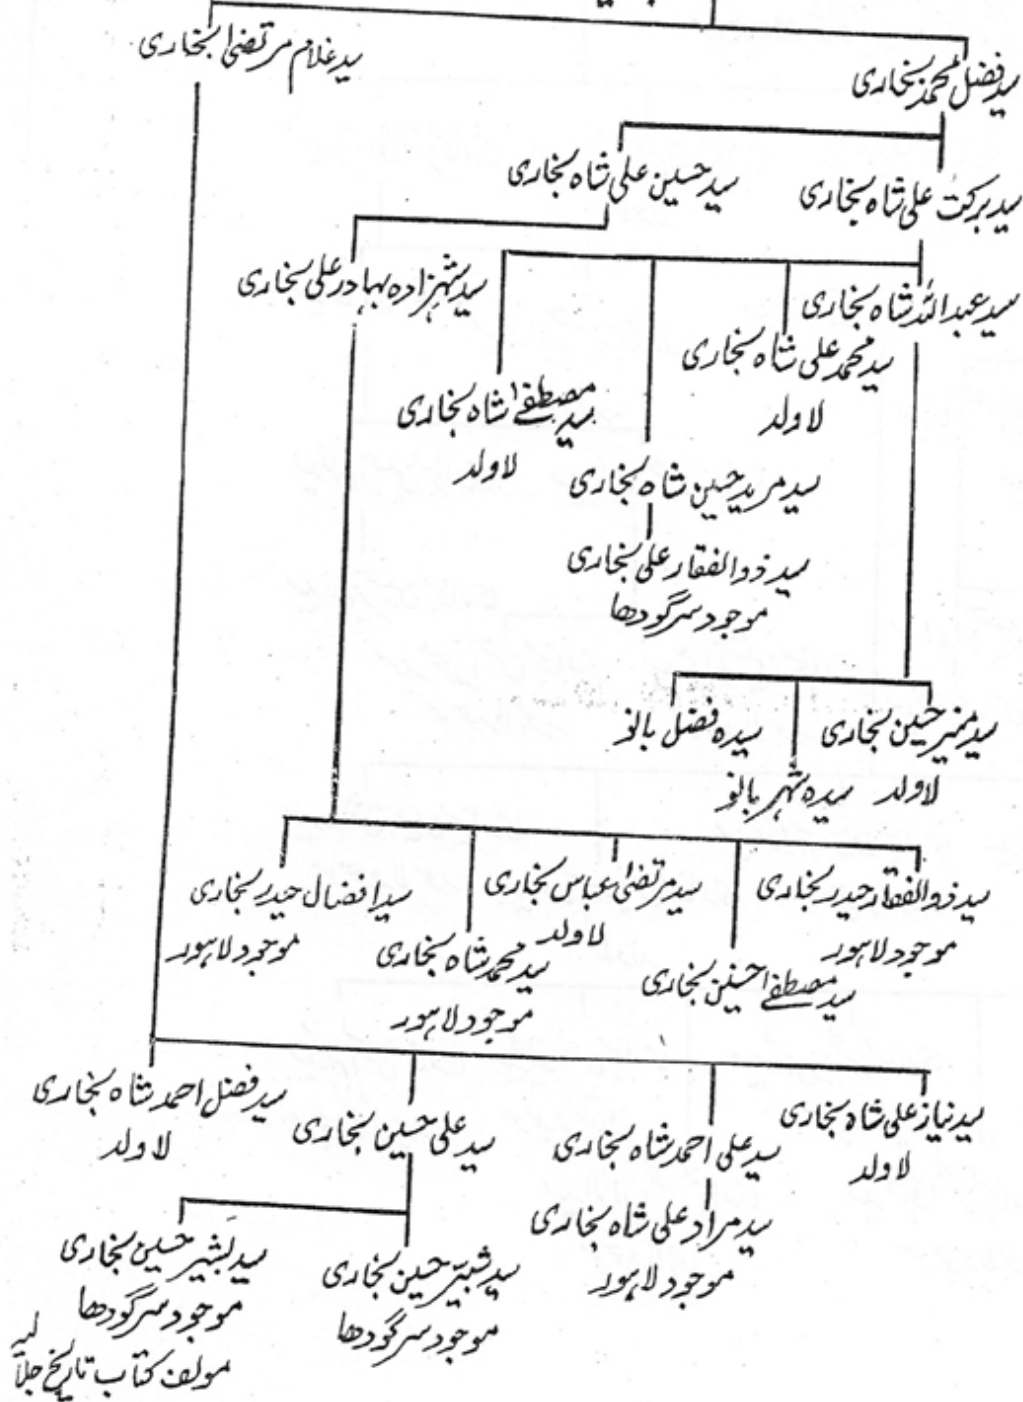 سید فضل محمد بخاری
سید غلام مرتضیٰ بخاری
سید برکت علی شاہ بخاری
سید حسین علی شاہ بخاری
سید عبداللہ شاہ بخاری
سید محمد علی شاہ بخاری
لا ولد
سید مصطفےٰ شاہ بخاری
لا ولد
سید شہزادہ بہادر علی بخاری
سید مرید حسین شاہ بخاری
سید ذوالفقار علی بخاری
موجود سرگودھا
سید منیر حسین بخاری
لا ولد
سیدہ شہر بانو
سیدہ فضل بانو
سید ذوالفقار حیدر بخاری
موجود لاہور
سید مصطفےٰ حسنین بخاری
سید مرتضیٰ عباس بخاری
لا ولد
سید محمد شاہ بخاری
موجود لاہور
سید افضال حیدر بخاری
موجود لاہور
سید نیاز علی شاہ بخاری
لا ولد
سید علی احمد شاہ بخاری
سید مراد علی شاہ بخاری
موجود لاہور
سید علی حسین بخاری
سید فضل احمد شاہ بخاری
لا ولد
سید شبیر حسین بخاری
موجود سرگودھا
سید بشیر حسین بخاری
موجود سرگودھا
مولف کتاب تاریخ جلالیہ